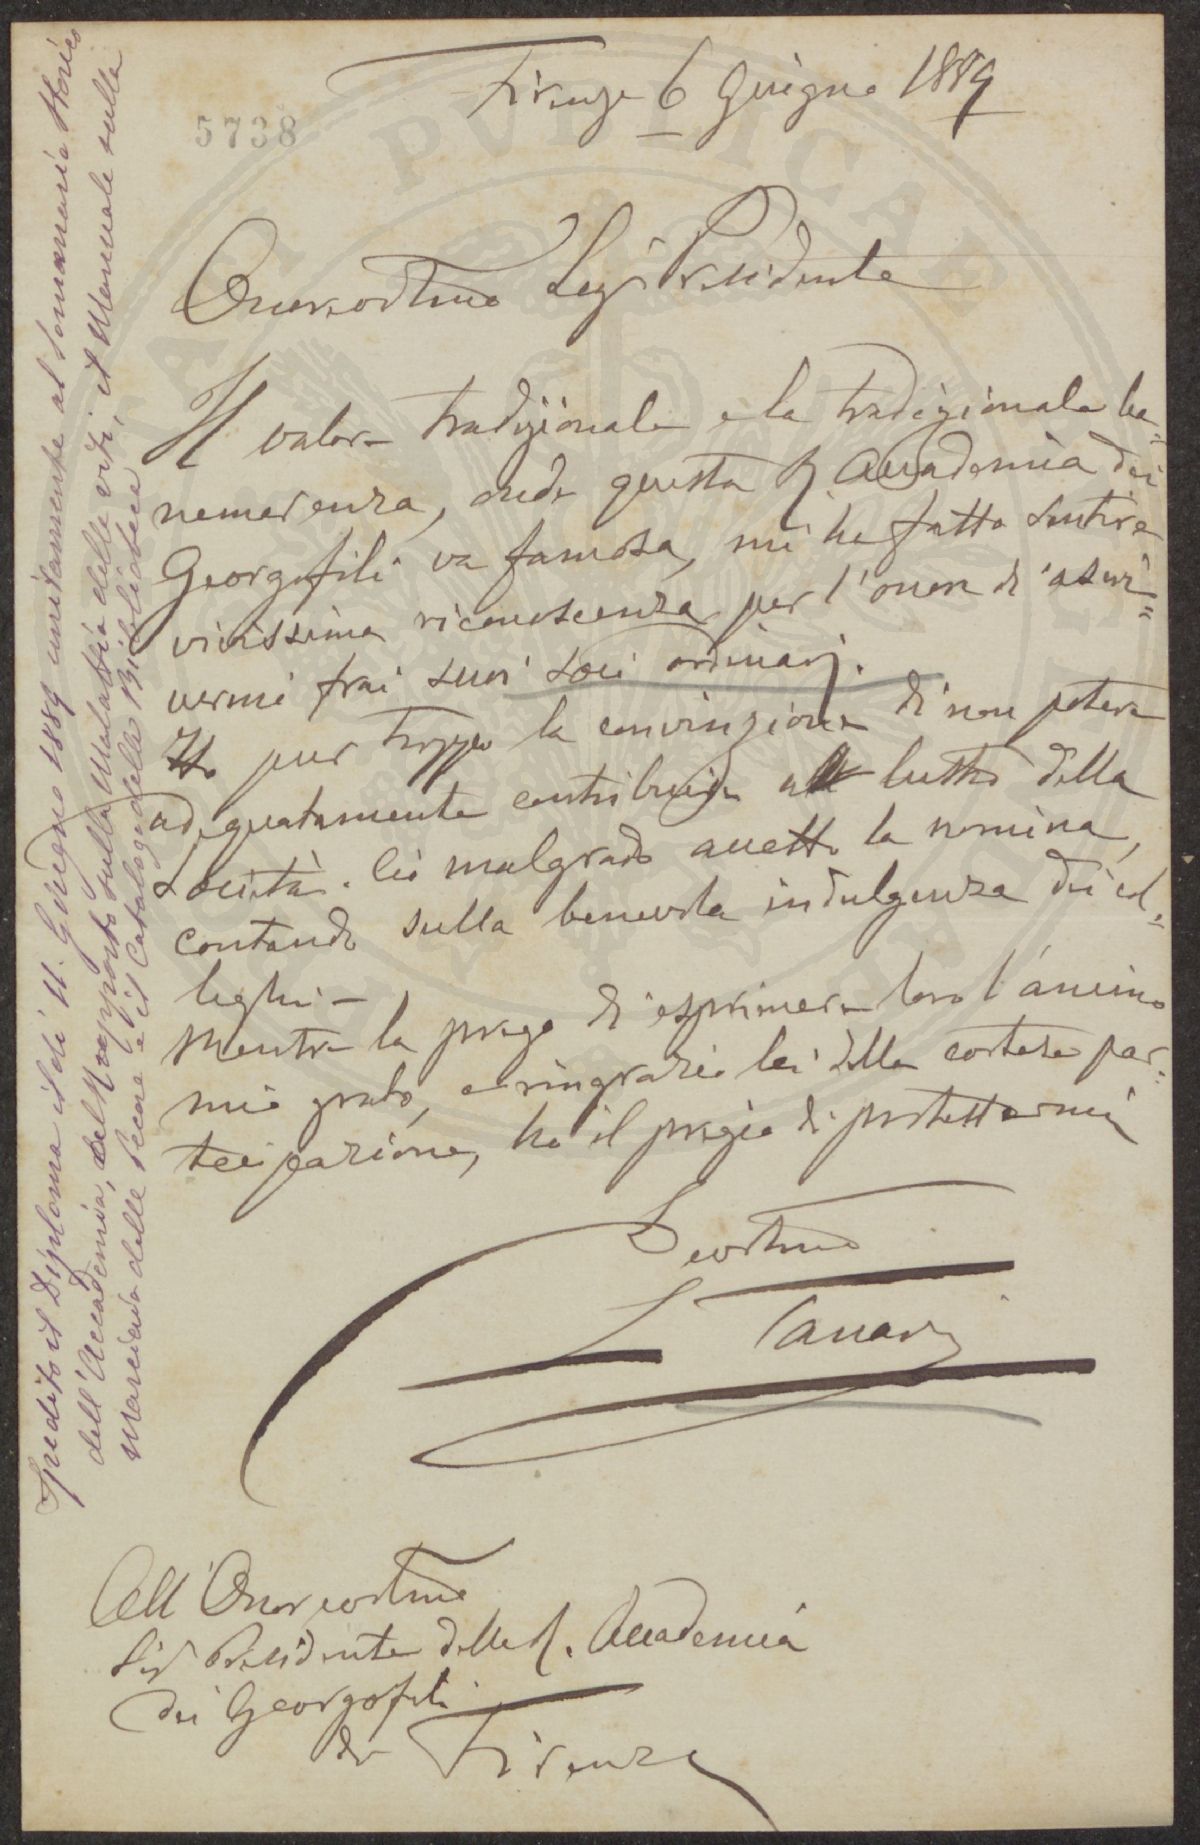 Firenze 6 Giugno 1889
5738
Onorevolmo Sigr Presidente
Il valore tradizionale e la tradizionale be=
nemerenza, onde questa R. Accademia dei
Georgofili va famosa, mi ha fatto sentire
vivissima riconoscenza per l'onore d'ascri=
vermi frai suoi soci ordinarj.
Ho pur troppo la convinzione di non potere
adeguatamente contribuire al lustro della
Società. Ciò malgrado accetto la nomina,
contando sulla benevola indulgenza dei col=
leghi –
Mentre la prego di esprimere loro l'animo
mio grato, e ringrazio lei della cortese par=
tecipazione, ho il pregio di protestarmi
Devotmo
L Tanari
All' Onorevolmo
Sigr Presidente della R. Accademia
dei Georgofili
di Firenze
Spedito il Diploma il dì 11. Giugno 1889 unitamente al Sommario Storico
dell'Accademia, del Rapporto sulla Malattia delle viti, il Manuale sulla
Marciaia delle Pecore e il Catalogo della Biblioteca